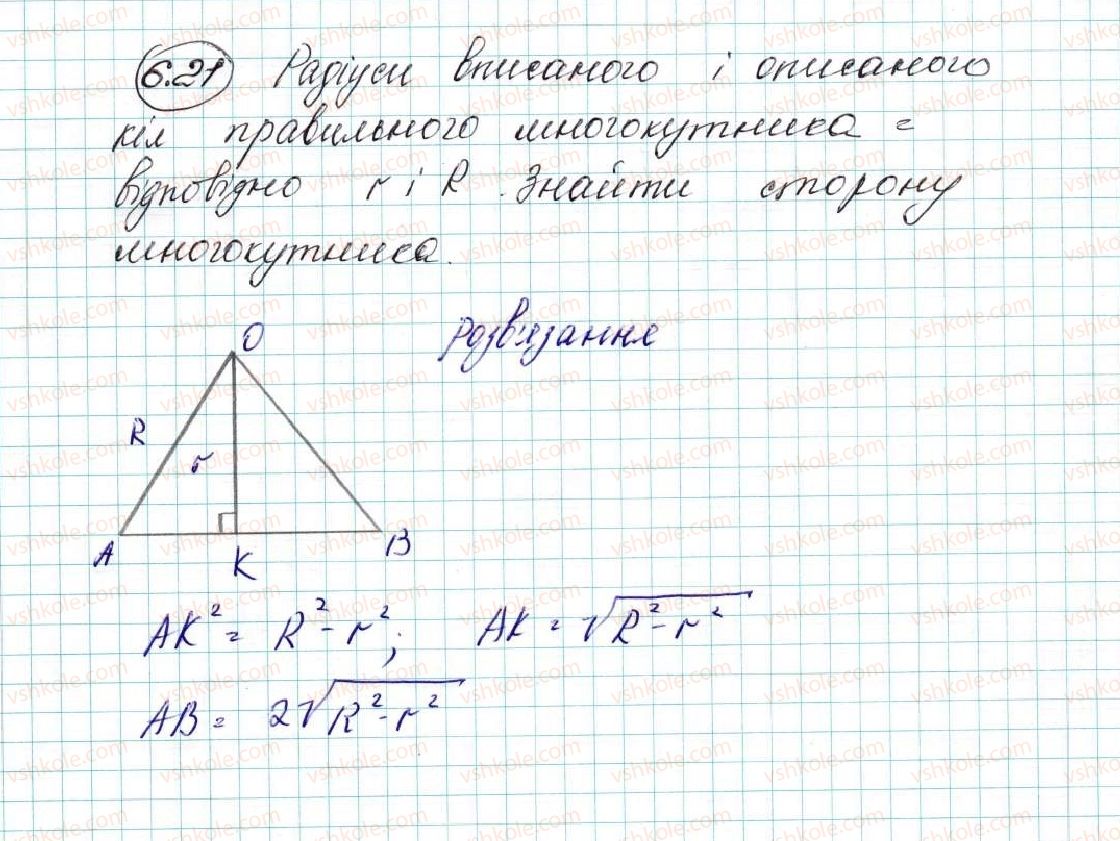 6.21 Радіуси вписаного і описаного
кіл правильного многокутника =
відповідно r і R. Знайти сторону
многокутника.
Розв'язання
O
R
r
A
K
B
AK² = R² - r²; AK = √(R² - r²)
AB = 2√(R² - r²)
vshkole.com